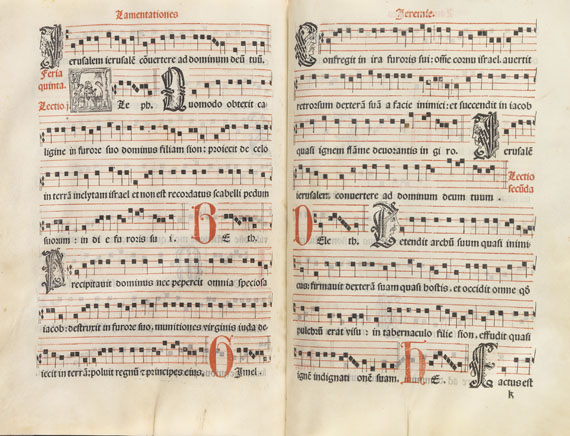 Lamentationes
Jerusalem ierusalē cōvertere ad dominum deū tuū.
Feria
quinta.
Lectio j.
Ale ph. Quomodo obtexit ca
ligine in furore suo dominus filiam sion: proiecit de celo
in terrā inclytam israel et non est recordatus scabelli pedum
suorum: in di e fu roris su i. BE th.
Precipitauit dominus nec pepercit omnia speciosa
iacob: destruxit in furore suo. munitiones virginis iuda de
iecit in terrā: poluit regnū ⁊ principes eius. Gimel
Jeremie.
Confregit in ira furoris sui: oīne cornu israel. auertit
retrorsum dexterā suā a facie inimici: et succendit in iacob
quasi ignem flāme deuorantis in gi ro. Jerusalē
ierusalem cōuertere ad dominum deum tuum.
Lectio
secūda
DEle th. Tetendit archū suum quasi inimi
cus: firmauit dexterā suam quasi hostis. et occidit omne qd̄
pulcrū erat visu: in tabernaculo filie sion. effudit quasi
ignē indignati onē suam. hE. Factus est
k